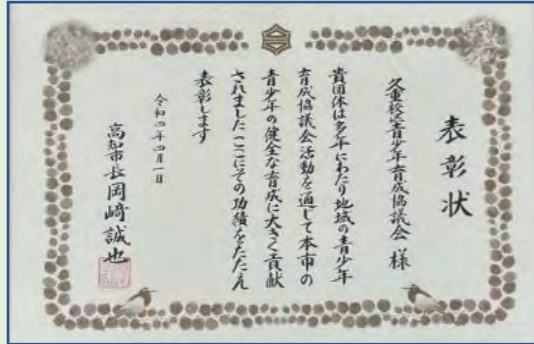 表彰状
久重校区青少年育成協議会 様
貴団体は多年にわたり地域の青少年
育成協議会活動を通して本市の
青少年の健全な育成に大きく貢献
されましたここにその功績をたたえ
表彰します
令和四年四月一日
高知市長 岡﨑誠也